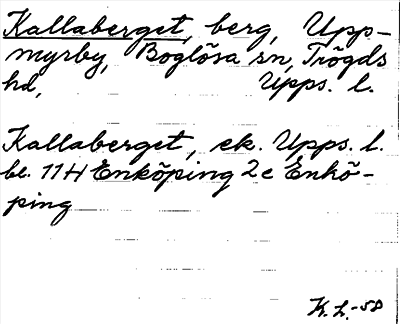 Kallaberget, berg, Upp-
myrby, Boglösa sn, Trögds
hd, Upps. l.
Kallaberget, ek. Upps. l.
bl. 11 H Enköping 2 c Enkö-
ping
K. L. -58